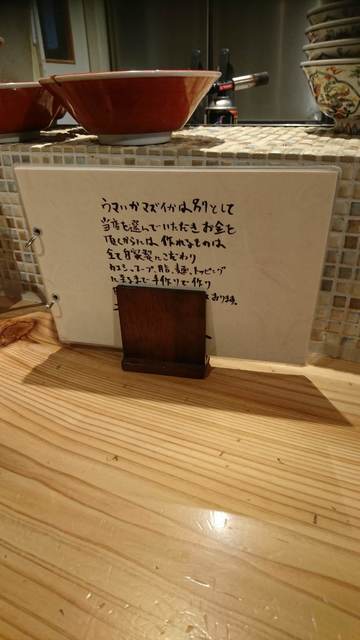 ウマいかマズイかは別として
当店を選んでいただきお金を
頂くからには、作れるものは
全て自家製にこだわり
カエシ、スープ、脂、麺、トッピング
に至るまで手作りで作り
おります。